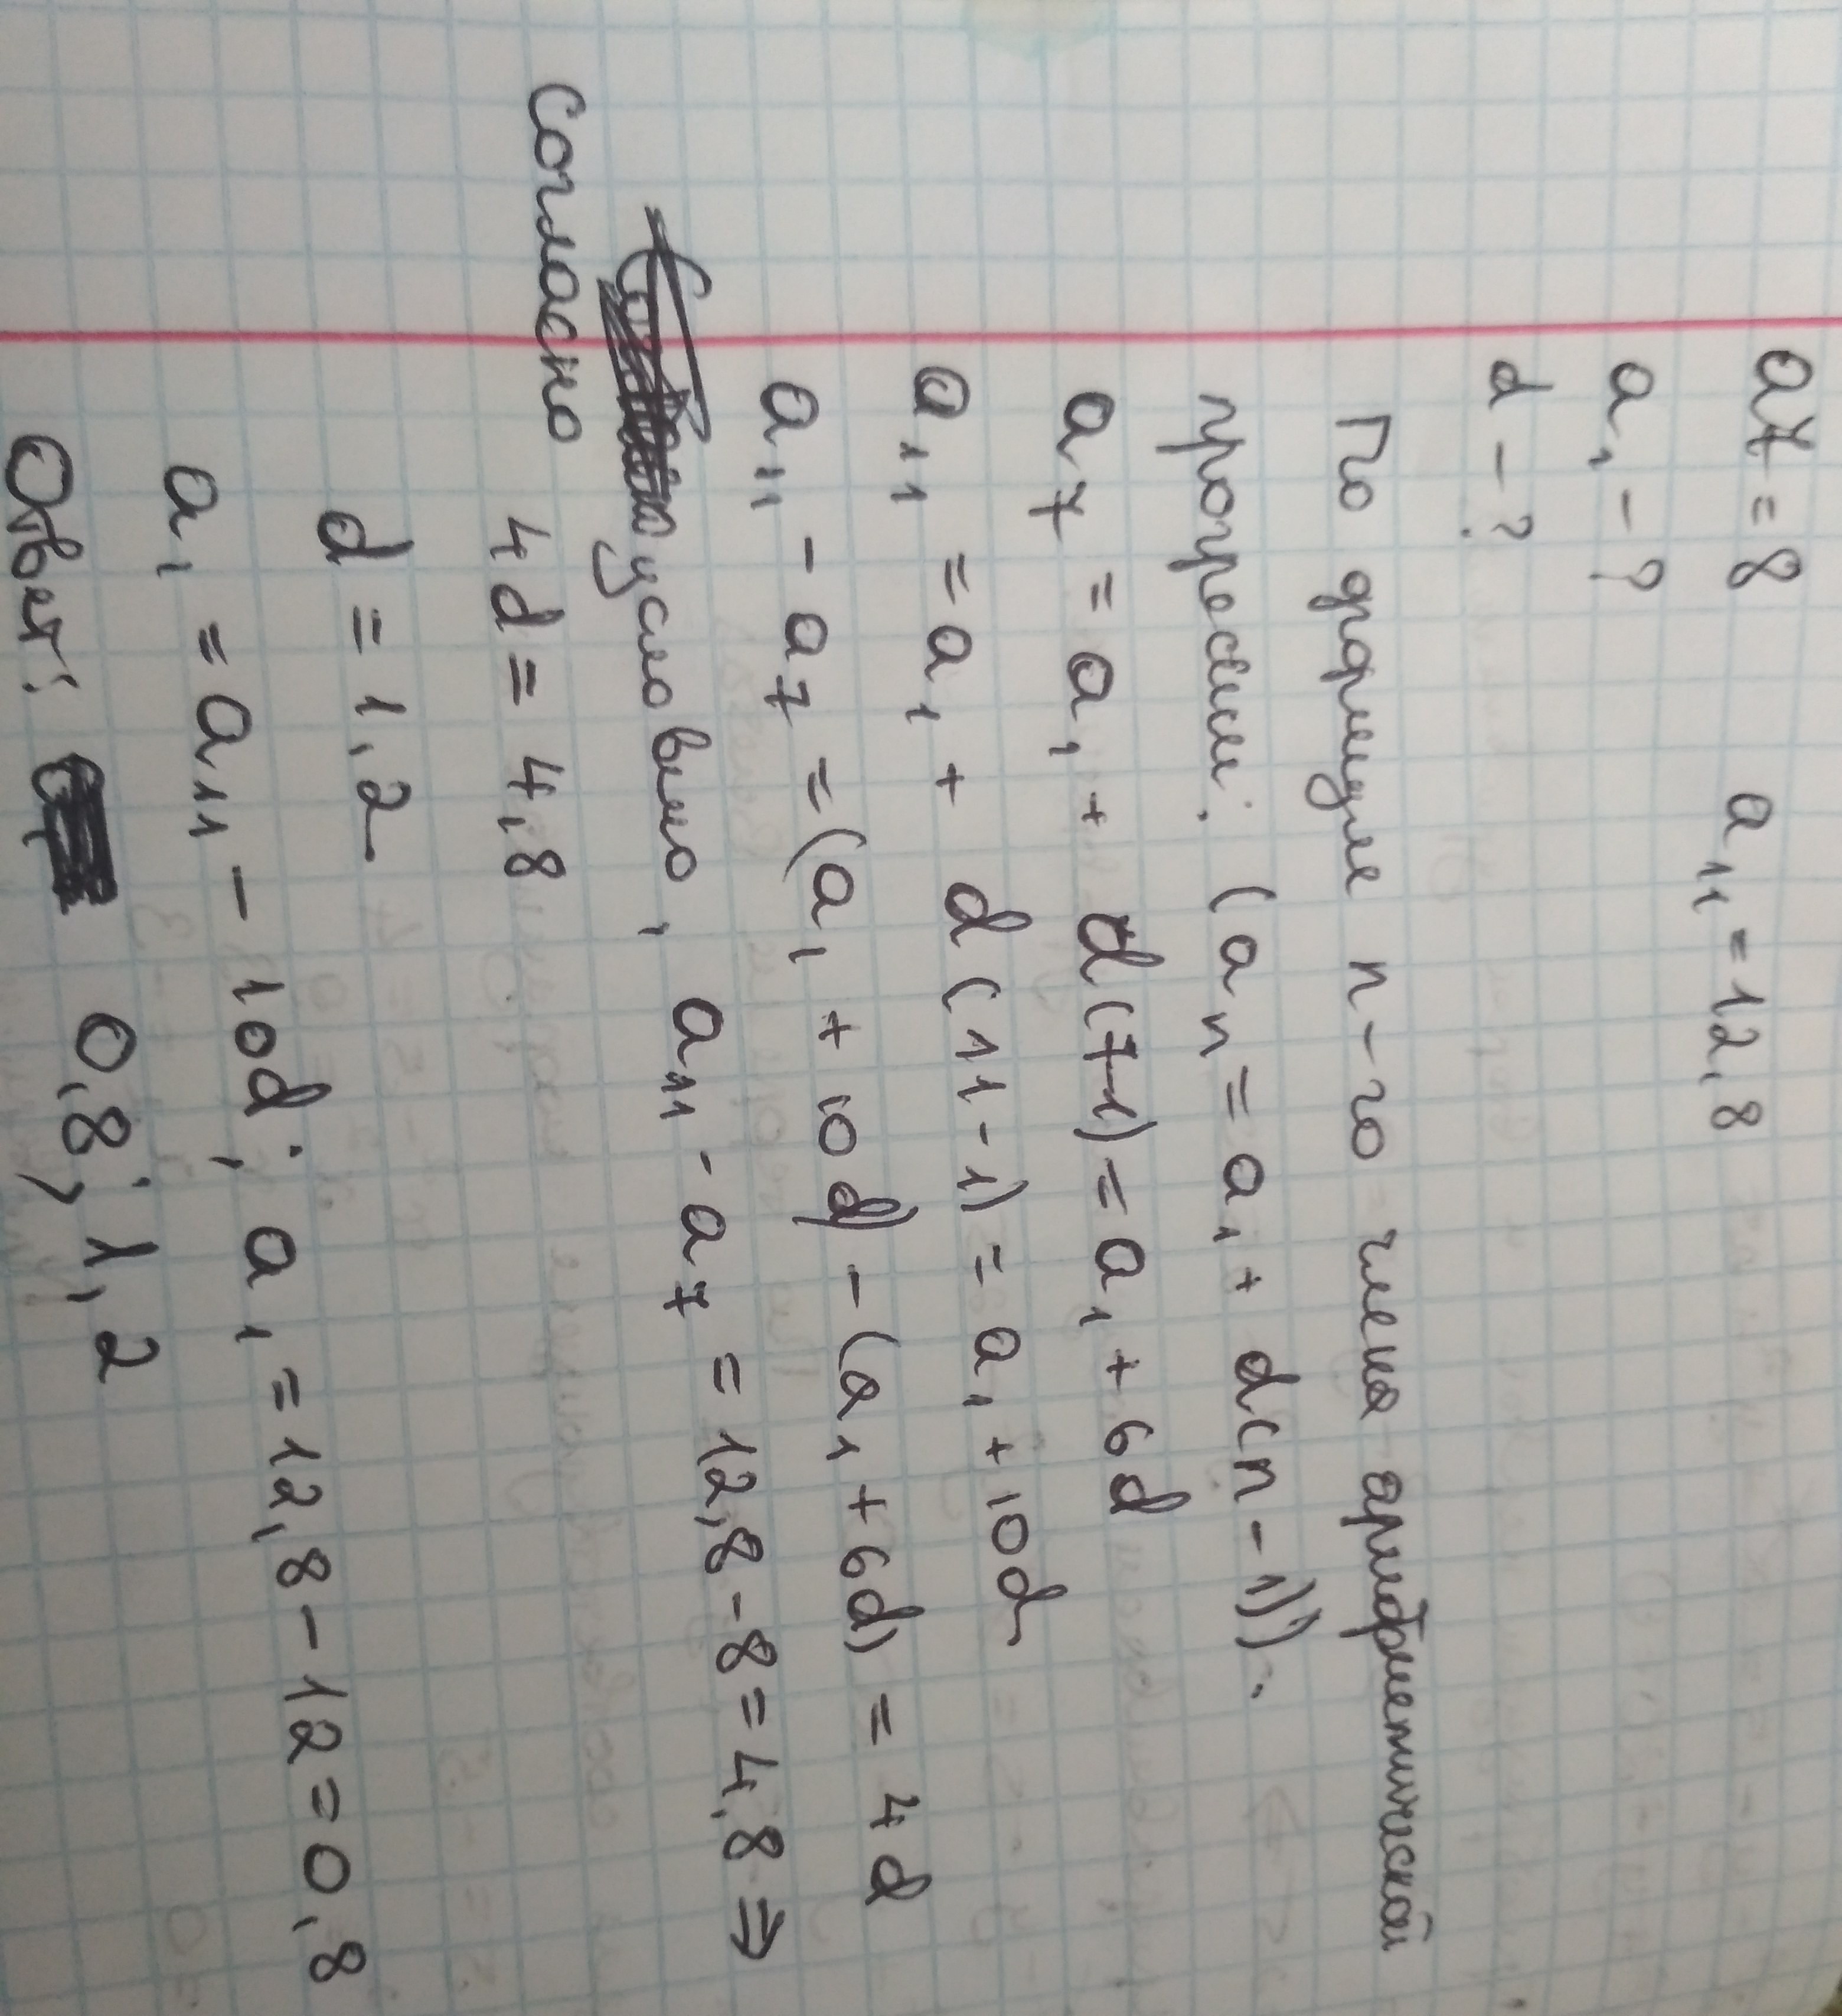 a7 = 8 a₁₁ = 12,8
a₁ - ?
d - ?
По формуле n-го члена арифметической
прогрессии: (aₙ = a₁ + d(n-1)).
a₇ = a₁ + d(7-1) = a₁ + 6d
a₁₁ = a₁ + d(11-1) = a₁ + 10d
a₁₁ - a₇ = (a₁ + 10d) - (a₁ + 6d) = 4d
Согласно условию, a₁₁ - a₇ = 12,8 - 8 = 4,8 ⇒
4d = 4,8
d = 1,2
a₁ = a₁₁ - 10d; a₁ = 12,8 - 12 = 0,8
Ответ: 0,8; 1,2